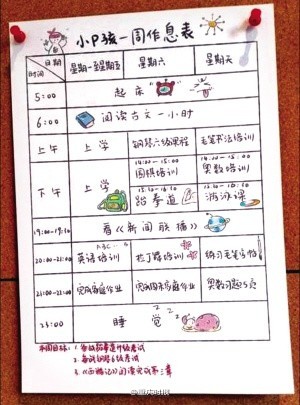 小P孩一周作息表
日期 星期一至星期五 星期六 星期天
时间
5:00 起床
6:00 阅读古文一小时
上午 上学 钢琴六级课程 毛笔书法培训
14:00-15:00 14:00-15:00
围棋培训 奥数培训
下午 上学 15:10-16:10 15:10-16:10
跆拳道 游泳课
19:00-19:30 看《新闻联播》
20:00-21:00 英语培训 拉丁舞培训 练习毛笔字帖
21:00-22:00 完成家庭作业 完成周末家庭作业 奥数习题5页
23:00 睡觉
本周目标: 1. 参加跆拳道升级考试
2. 备战钢琴6级考试
3. 《西游记》阅读完成第三章